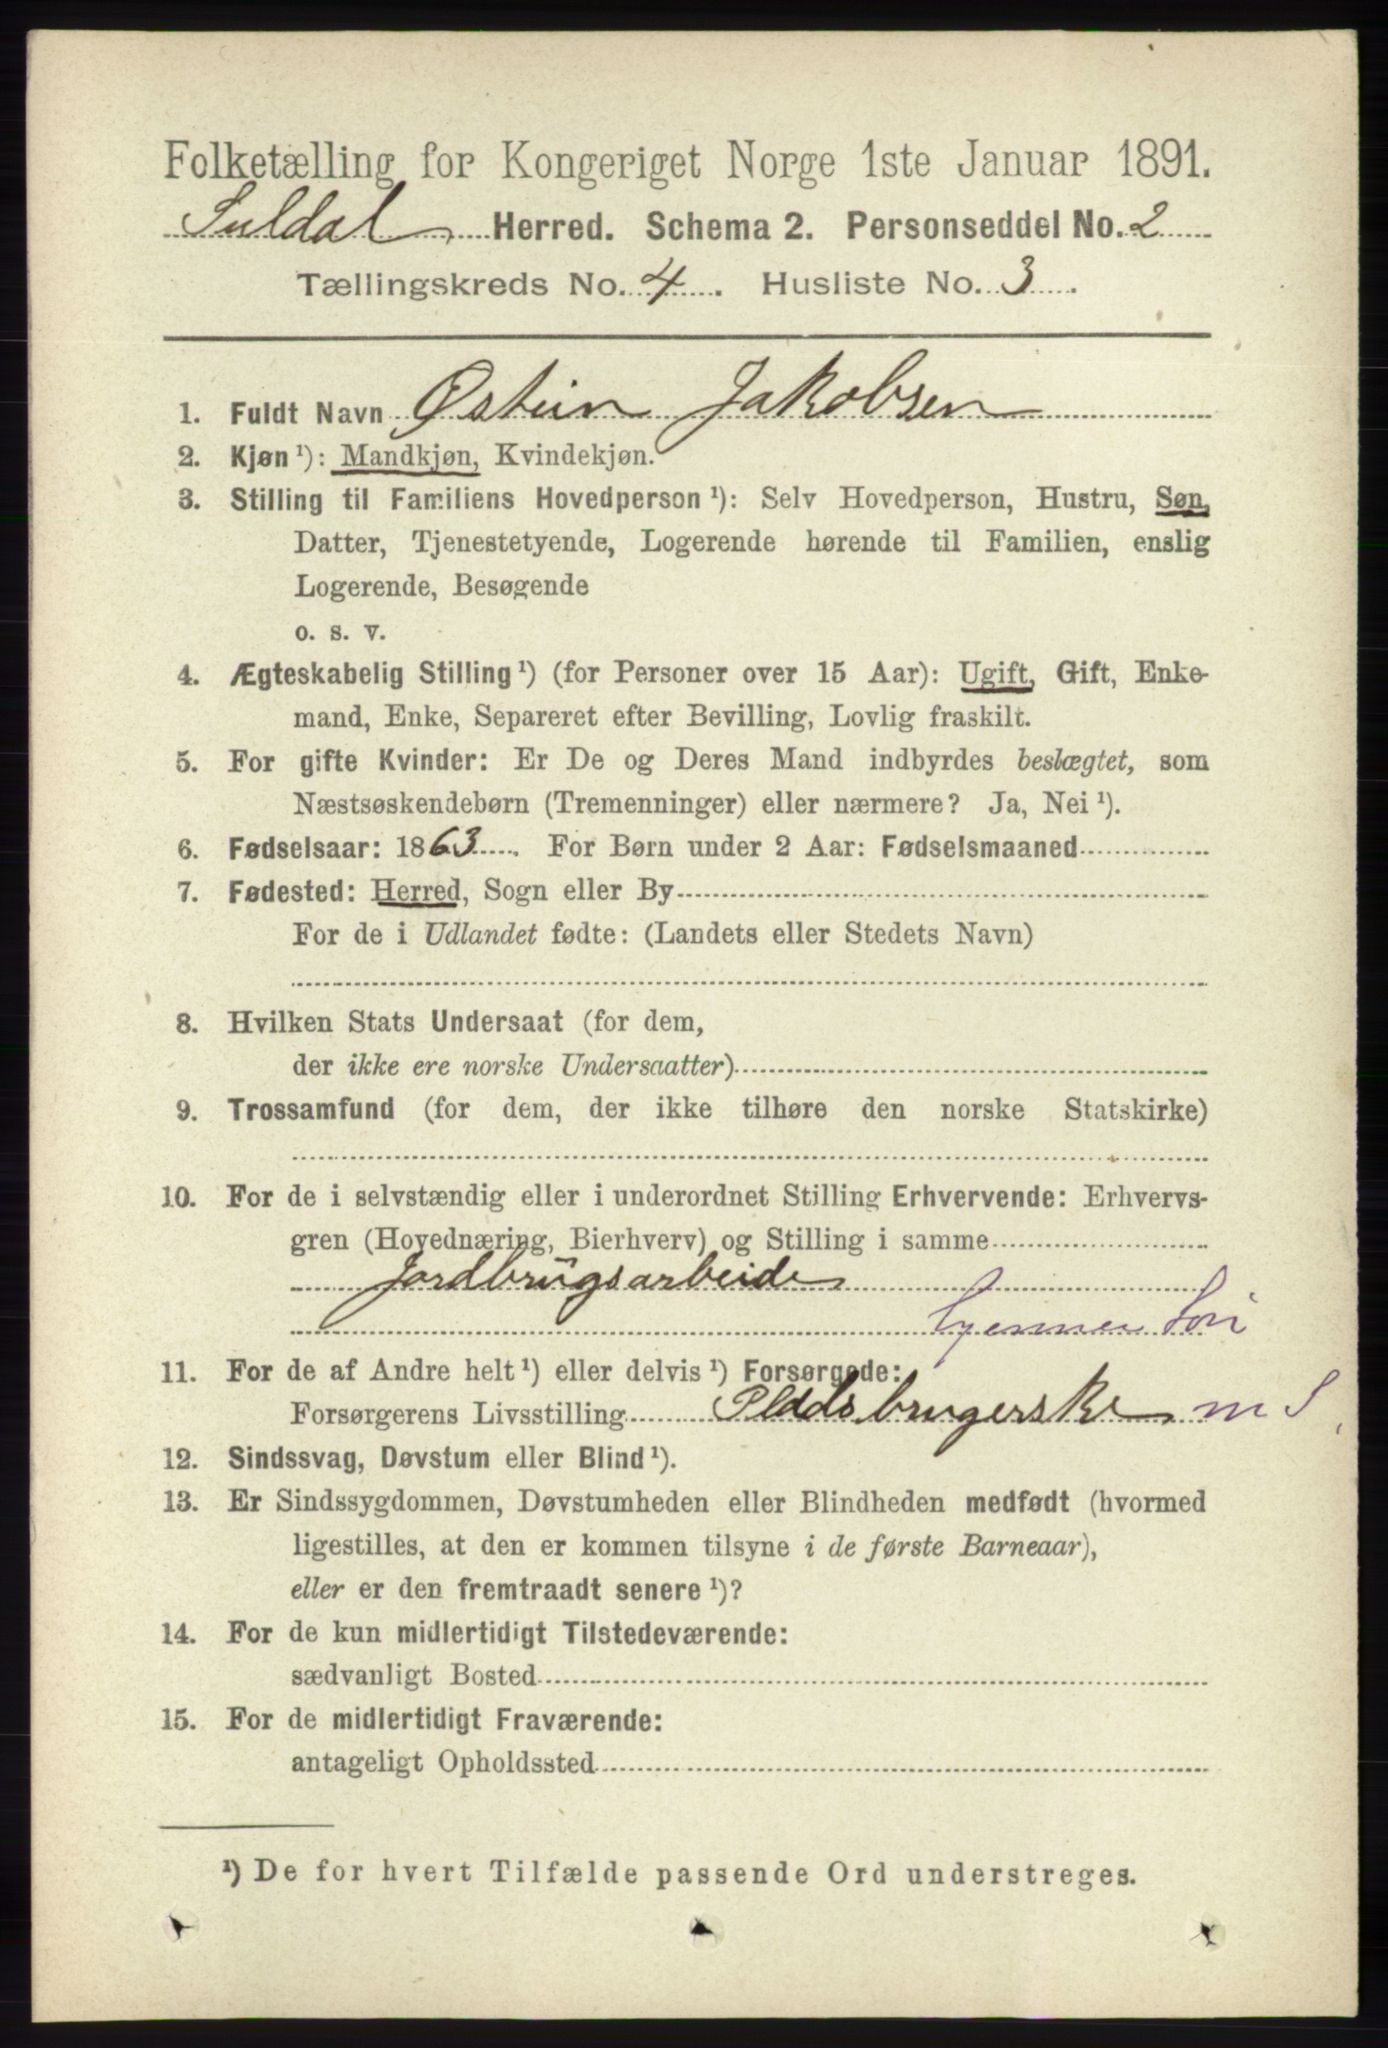 Folketælling for Kongeriget Norge 1ste Januar 1891.
Suldal Herred. Schema 2. Personseddel No. 2
Tællingskreds No. 4. Husliste No. 3.
1. Fuldt Navn Østein Jakobsen
2. Kjøn ¹): Mandkjøn, Kvindekjøn.
3. Stilling til Familiens Hovedperson ¹): Selv Hovedperson, Hustru, Søn,
Datter, Tjenestetyende, Logerende hørende til Familien, enslig
Logerende, Besøgende
o. s. v.
4. Ægteskabelig Stilling ¹) (for Personer over 15 Aar): Ugift, Gift, Enke-
mand, Enke, Separeret efter Bevilling, Lovlig fraskilt.
5. For gifte Kvinder: Er De og Deres Mand indbyrdes beslægtet, som
Næstsøskendebørn (Tremenninger) eller nærmere? Ja, Nei ¹).
6. Fødselsaar: 1863. For Børn under 2 Aar: Fødselsmaaned
7. Fødested: Herred, Sogn eller By
For de i Udlandet fødte: (Landets eller Stedets Navn)
8. Hvilken Stats Undersaat (for dem,
der ikke ere norske Undersaatter)
9. Trossamfund (for dem, der ikke tilhøre den norske Statskirke)
10. For de i selvstændig eller i underordnet Stilling Erhvervende: Erhvervs-
gren (Hovednæring, Bierhverv) og Stilling i samme
Jordbrugsarbeide
11. For de af Andre helt ¹) eller delvis ¹) Forsørgede:
Forsørgerens Livsstilling Pladsbrugerske m S
12. Sindssvag, Døvstum eller Blind ¹).
13. Er Sindssygdommen, Døvstumheden eller Blindheden medfødt (hvormed
ligestilles, at den er kommen tilsyne i de første Barneaar),
eller er den fremtraadt senere ¹)?
14. For de kun midlertidigt Tilstedeværende:
sædvanligt Bosted
15. For de midlertidigt Fraværende:
antageligt Opholdssted
¹) De for hvert Tilfælde passende Ord understreges.